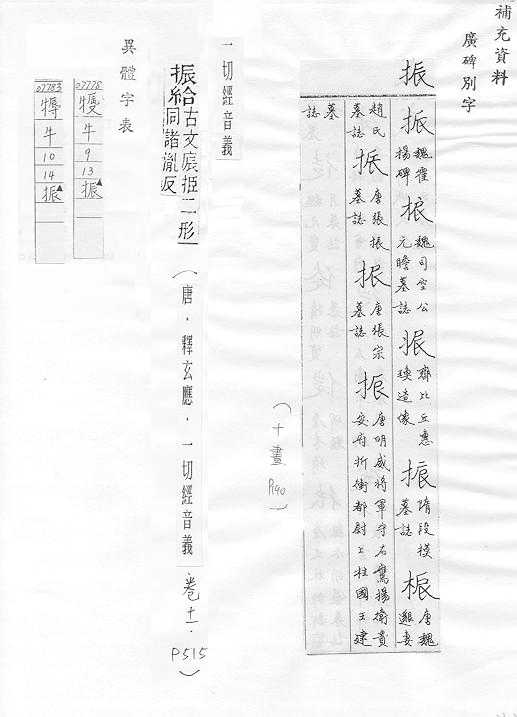 補充資料
廣碑別字
振
振 魏霍揚碑 振 魏司空公元瞻墓誌 振 齊比丘惠瑍造像 振 隋段模墓誌 振 唐魏邈妻
趙氏墓誌 振 唐張振墓誌 振 唐張宗墓誌 振 唐明威將軍守右鷹揚衛貴安府折衝都尉上柱國王建
墓誌
(十畫 P140)
一切經音義
振給 古文宸挋二形同諸胤反
(唐．釋玄應．一切經音義 卷十一．P515)
異體字表
07778
牛
9
13
振▲
07783
牛
10
14
振▲